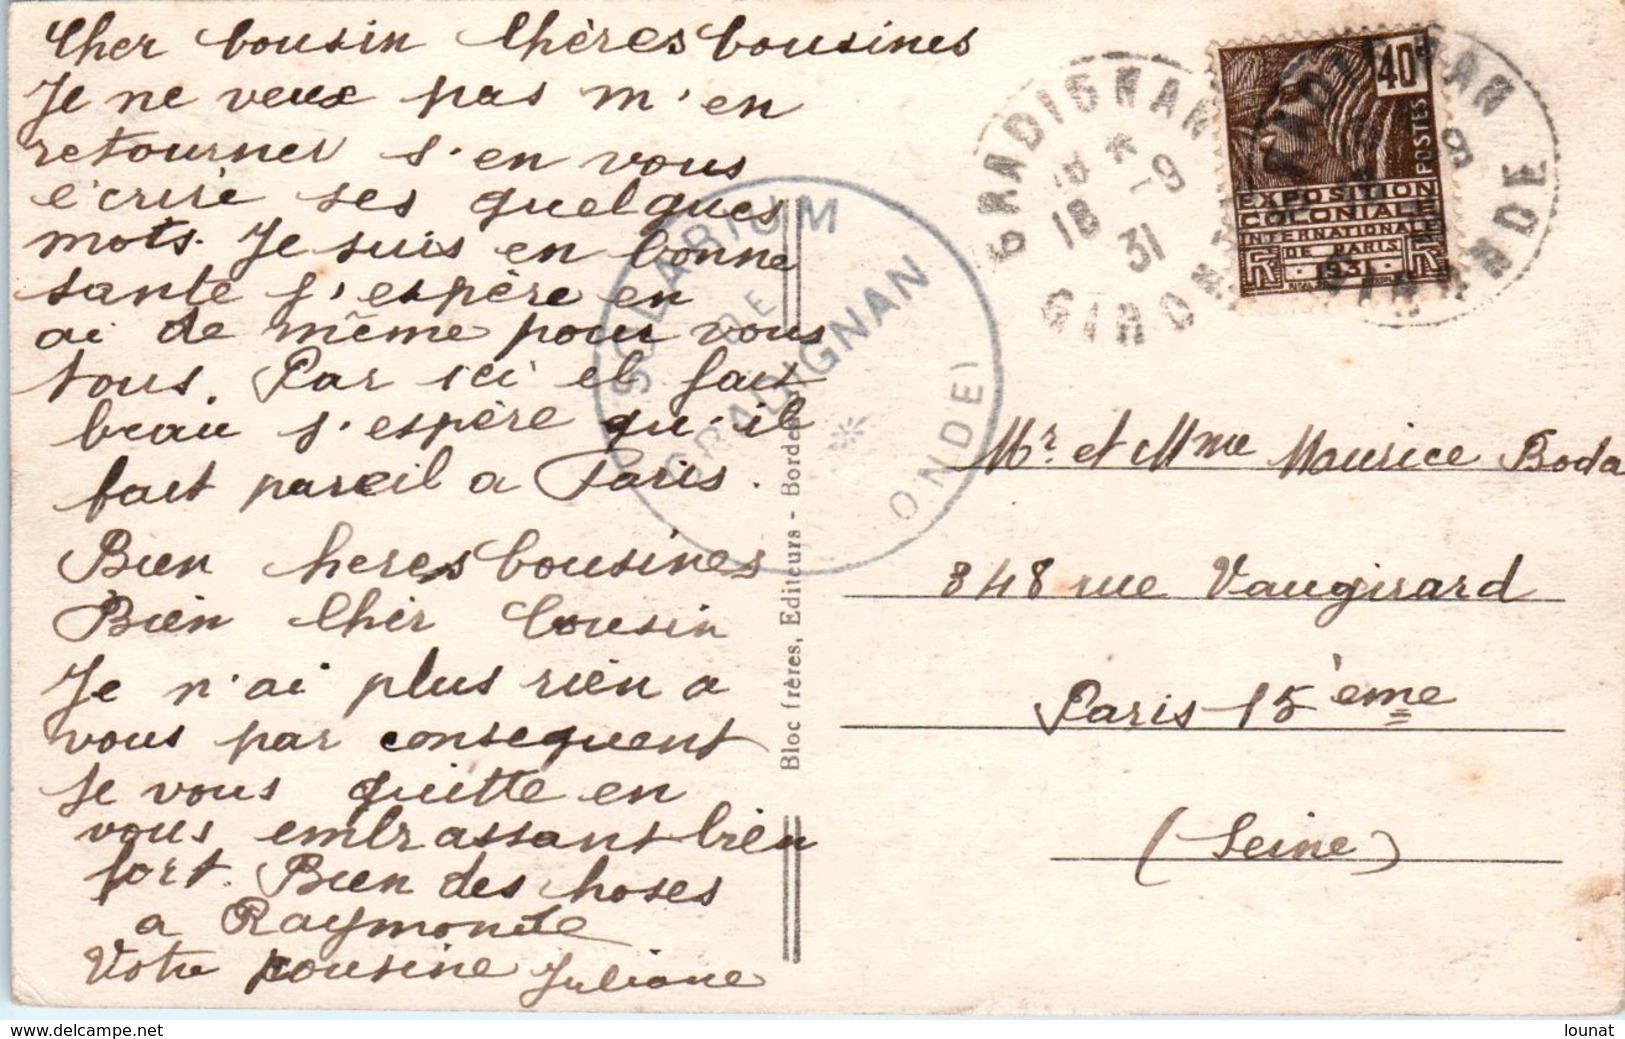 Cher Cousin Chères Cousines
Je ne veux pas m'en
retourner s'en vous
écrire ses quelques
mots. Je suis en bonne
sante j'espère en
ai de même pour vous
tous. Par ici el fait
beau j'espère qu'il
fait pareil a Paris.
Bien heres Cousines
Bien Cher Cousin
Je n'ai plus rien a
vous par consequent
Je vous quitte en
vous embrassant bien
fort. Bien des hoses
a Raymonde
Votre cousine Juliane
Bloc frères, Editeurs - Bordeaux
SOLARIUM
DE
GRADIGNAN
ONDE)
GRADIGNAN
18 -9
31
GIRONDE
40c
POSTES
EXPOSITION
COLONIALE
INTERNATIONALE
DE PARIS
RF 1931 RF
Mr. et Mme Maurice Boda
348 rue Vaugirard
Paris 15ème
(Seine)
www.delcampe.net
lounat